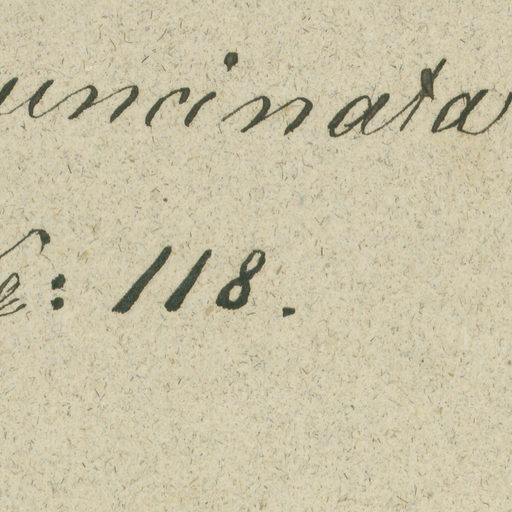 uncinata
: 118.